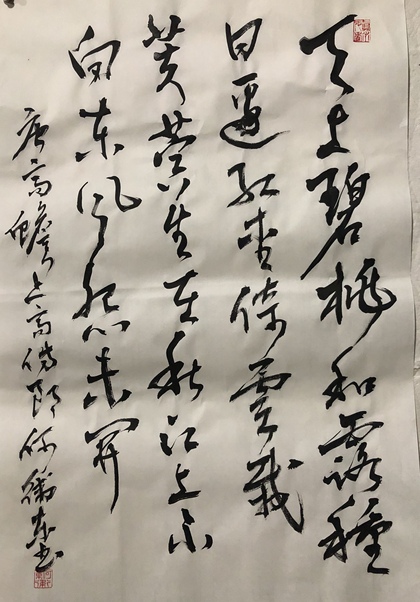 天上碧桃和露種
日邊紅杏倚雲栽
芙蓉生在秋江上不
向東風怨未開
唐高蟾上高侍郎 何衛東書